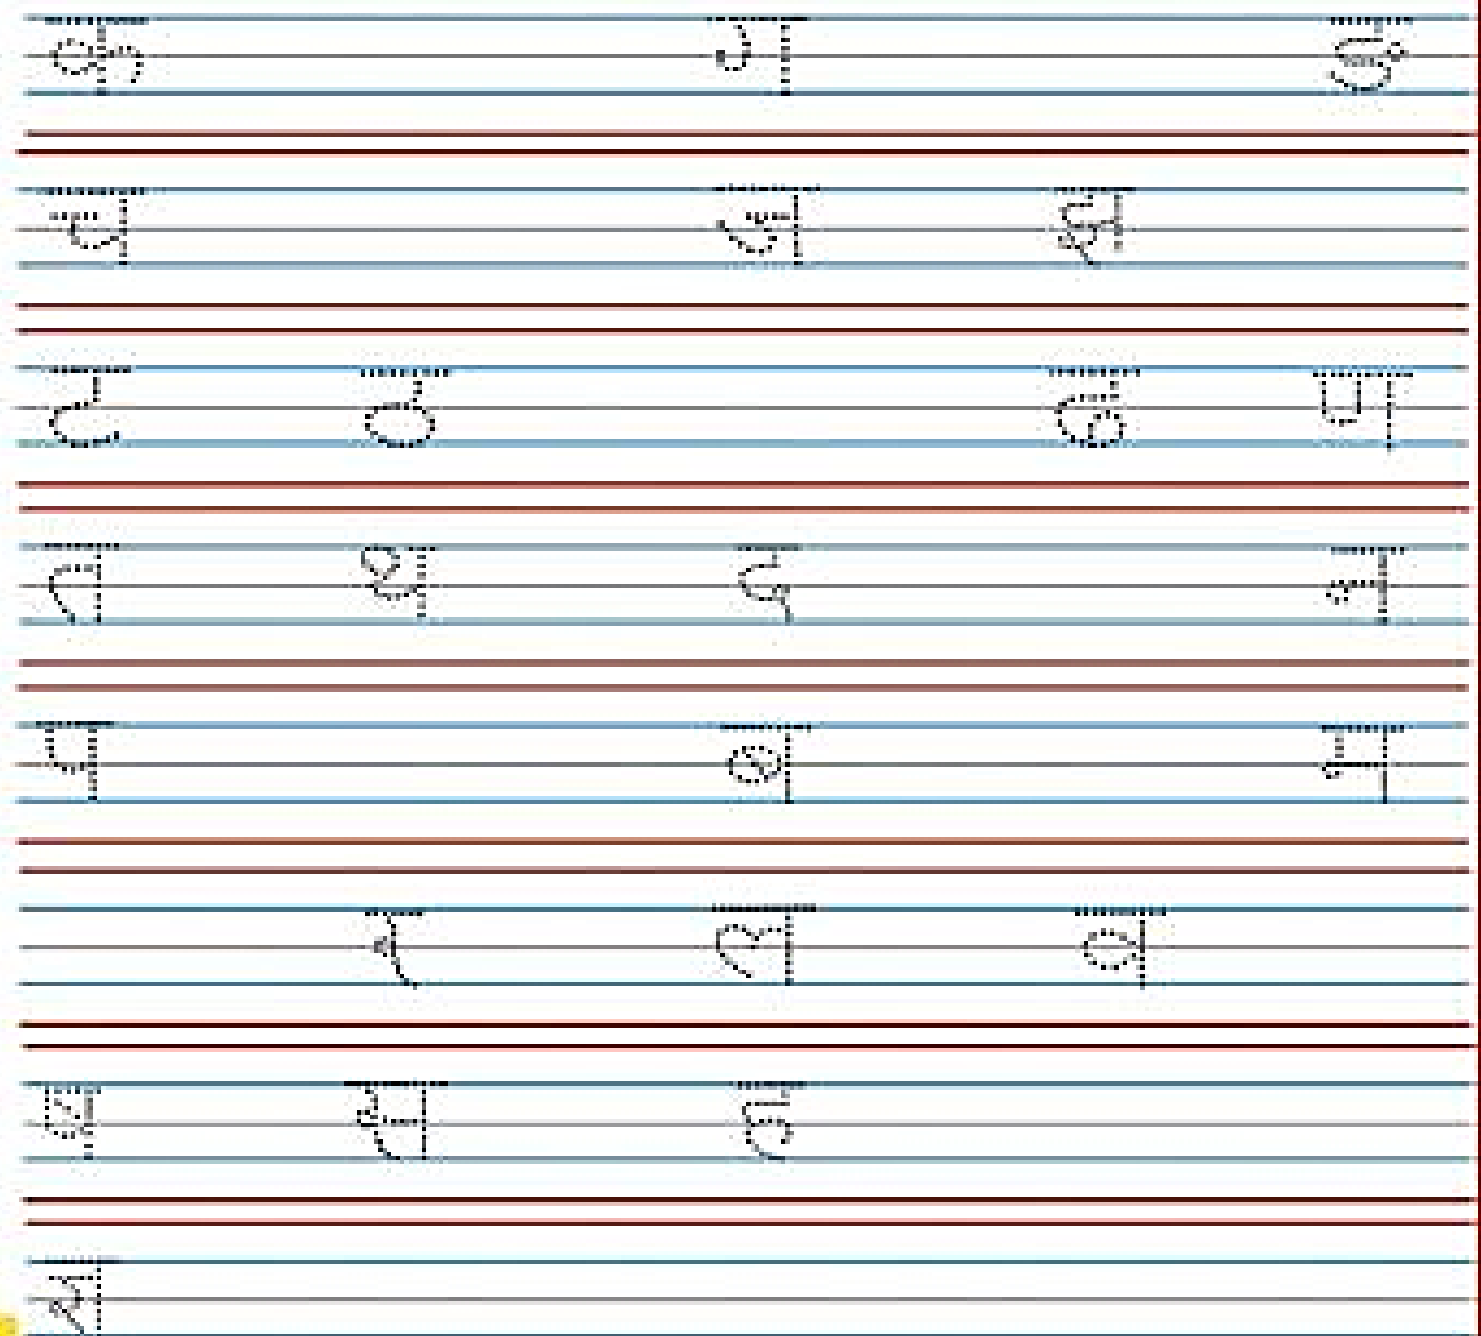 क ग ङ
च ज झ
ट ठ ढ ण
त थ द न
प ब म
र ल व
ष स ह
क्ष